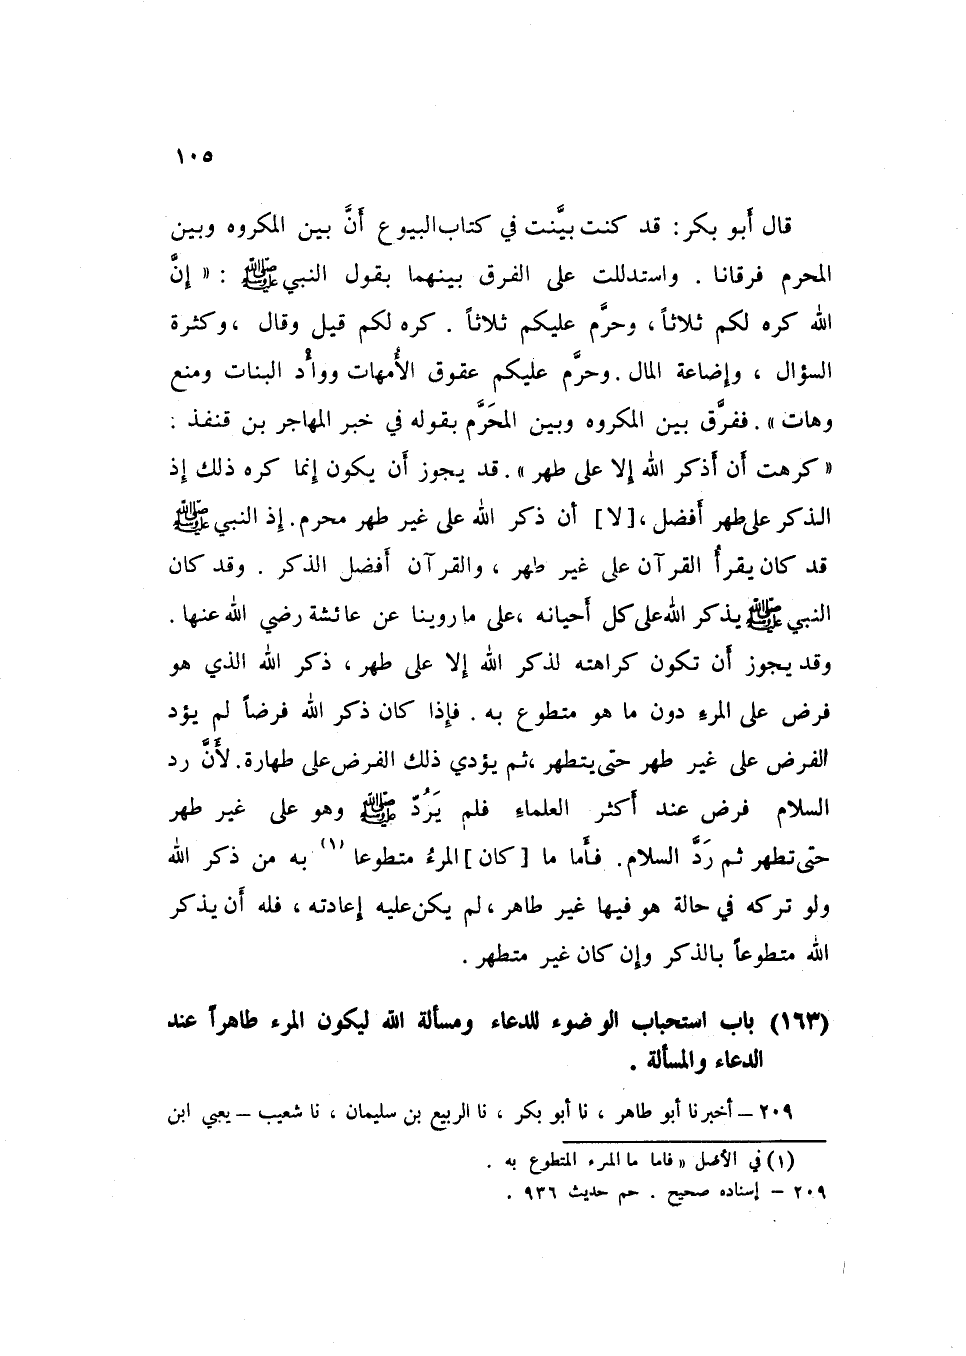 ١٠٥
قال أَبو بكر: قد كنت بيَّنت في كتاب البيوع أَنَّ بين المكروه وبين
المحرم فرقانا . واستدللت على الفرق بينهما بقول النبي ﷺ : « إِنَّ
الله كره لكم ثلاثاً، وحرَّم عليكم ثلاثاً . كره لكم قيل وقال ، وكثرة
السؤال ، وإِضاعة المال . وحرَّم عليكم عقوق الأُمهات ووأْد البنات ومنع
وهات» . ففرَّق بين المكروه وبين المحَرَّم بقوله في خبر المهاجر بن قنفذ :
«كرهت أَن أَذكر الله إِلا على طهر» . قد يجوز أَن يكون إِنما كره ذلك إِذ
الذكر على طهر أَفضل ، [لا] أن ذكر الله على غير طهر محرم. إِذ النبي ﷺ
قد كان يقرأُ القرآن على غير طهر ، والقرآن أَفضل الذكر . وقد كان
النبي ﷺ يذكر الله على كل أَحيانه ، على ما روينا عن عائشة رضي الله عنها .
وقد يجوز أَن تكون كراهته لذكر الله إِلا على طهر ، ذكر الله الذي هو
فرض على المرءِ دون ما هو متطوع به . فإِذا كان ذكر الله فرضاً لم يؤد
الفرض على غير طهر حتى يتطهر ، ثم يؤدي ذلك الفرض على طهارة. لأَنَّ رد
السلام فرض عند أَكثر العلماءِ فلم يَرُدّ ﷺ وهو على غير طهر
حتى تطهر ثم رَدَّ السلام. فأَما ما [كان] المرءُ متطوعا (١) به من ذكر الله
ولو تركه في حالة هو فيها غير طاهر ، لم يكن عليه إِعادته ، فله أَن يذكر
الله متطوعاً بالذكر وإِن كان غير متطهر .
(١٦٣) باب استحباب الوضوء للدعاء ومسألة الله ليكون المرء طاهراً عند
الدعاء والمسألة .
٢٠٩ – أخبرنا أبو طاهر ، نا أبو بكر ، نا الربيع بن سليمان ، نا شعيب – يعني ابن
(١) في الأصل « فاما ما المرء المتطوع به .
٢٠٩ – إسناده صحيح . حم حديث ٩٣٦ .